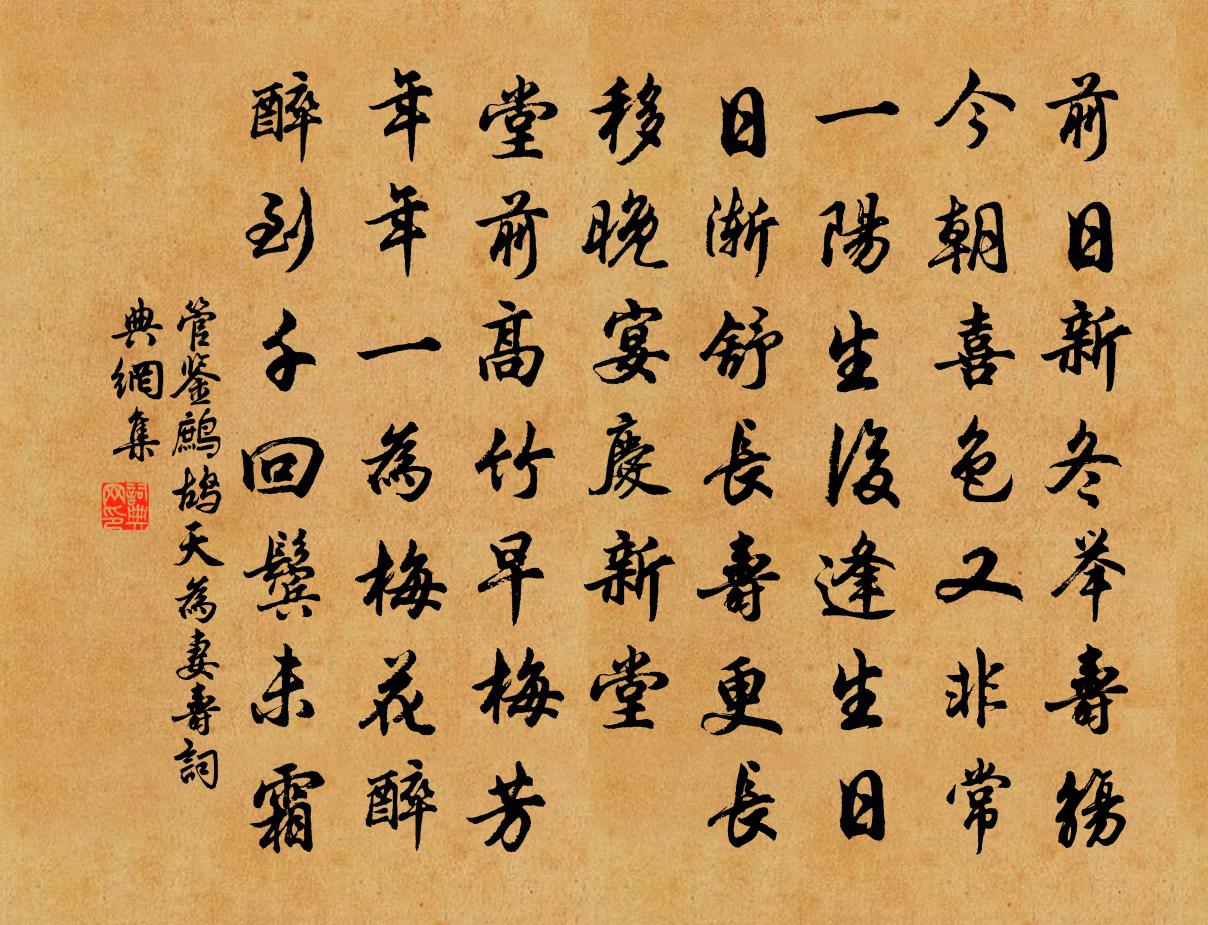 前日新冬举壽觴
今朝喜色又非常
一陽生後逢生日
日漸舒長壽更長
移晚宴慶新堂
堂前高竹早梅芳
年年一為梅花醉
醉到千回鬢未霜
管鉴鷓鴣天為妻壽詞
典網集
詞典
网印